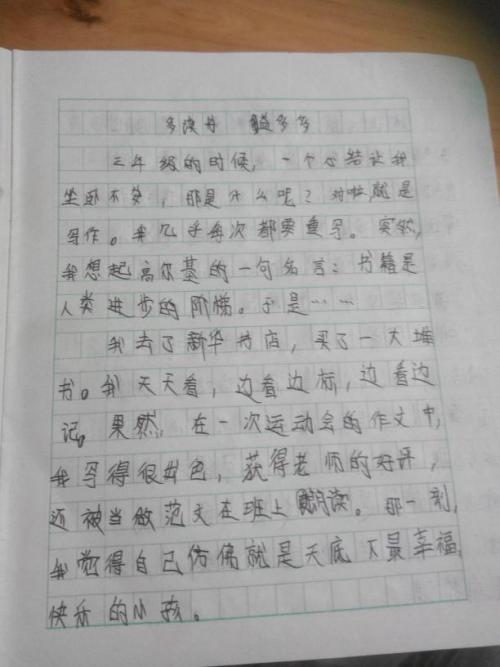 多读书 益多多
三年级的时候，一个心结让我
坐卧不安，那是什么呢？对啦，就是
写作。我几乎每次都要重写。突然，
我想起高尔基的一句名言：书籍是
人类进步的阶梯。于是……
我去了新华书店，买了一大堆
书。我天天看，边看边标，边看边
记。果然，在一次运动会的作文中，
我写得很出色，获得老师的好评，
还被当做范文在班上朗读。那一刻，
我觉得自己仿佛就是天底下最幸福，
快乐的小孩。